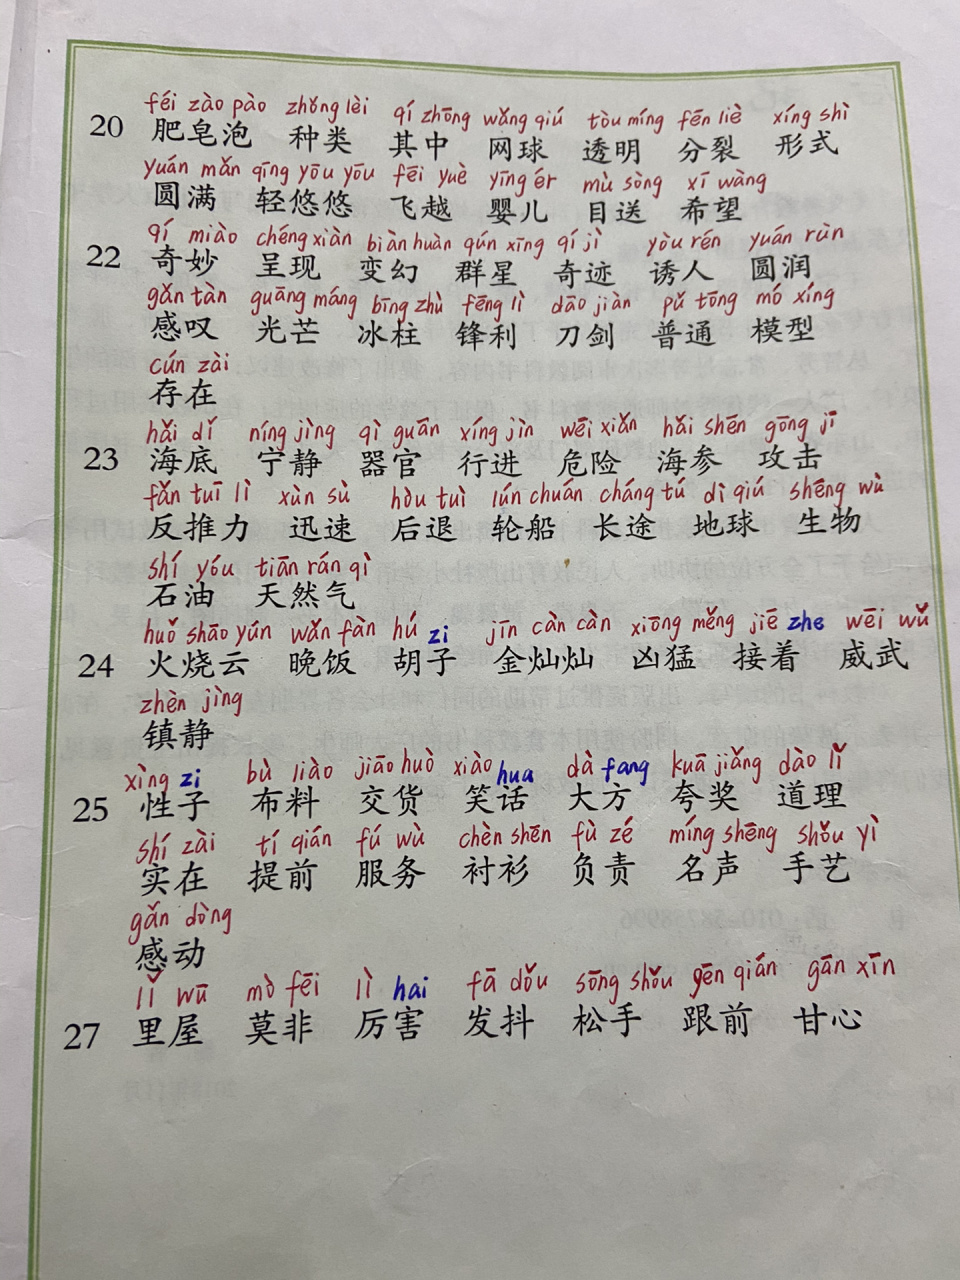 féi zào pào zhǒng lèi qí zhōng wǎng qiú tòu míng fēn liè xíng shì
20 肥皂泡 种类 其中 网球 透明 分裂 形式
yuán mǎn qīng yōu yōu fēi yuè yīng ér mù sòng xī wàng
圆满 轻悠悠 飞越 婴儿 目送 希望
qí miào chéng xiàn biàn huàn qún xīng qí jì yòu rén yuán rùn
22 奇妙 呈现 变幻 群星 奇迹 诱人 圆润
gǎn tàn guāng máng bīng zhù fēng lì dāo jiàn pǔ tōng mó xíng
感叹 光芒 冰柱 锋利 刀剑 普通 模型
cún zài
存在
hǎi dǐ níng jìng qì guān xíng jìn wēi xiǎn hǎi shēn gōng jī
23 海底 宁静 器官 行进 危险 海参 攻击
fǎn tuī lì xùn sù hòu tuì lún chuán cháng tú dì qiú shēng wù
反推力 迅速 后退 轮船 长途 地球 生物
shí yóu tiān rán qì
石油 天然气
huǒ shāo yún wǎn fàn hú zi jīn càn càn xiōng měng jiē zhe wēi wǔ
24 火烧云 晚饭 胡子 金灿灿 凶猛 接着 威武
zhèn jìng
镇静
xìng zi bù liào jiāo huò xiào hua dà fang kuā jiǎng dào lǐ
25 性子 布料 交货 笑话 大方 夸奖 道理
shí zài tí qián fú wù chèn shēn fù zé míng shēng shǒu yì
实在 提前 服务 衬衫 负责 名声 手艺
gǎn dòng
感动
lǐ wū mò fēi lì hai fā dǒu sōng shǒu gēn qián gān xīn
27 里屋 莫非 厉害 发抖 松手 跟前 甘心